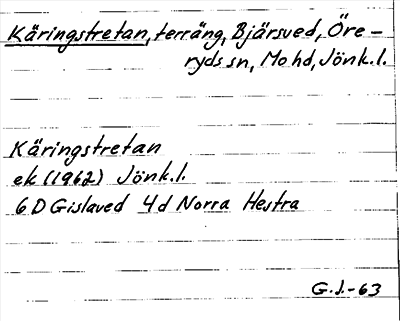 Käringstretan, terräng, Bjärsved, Öre-
ryds sn, Mo hd, Jönk.l.
Käringstretan
ek (1962) Jönk.l.
6D Gislaved 4d Norra Hestra
G.J.-63